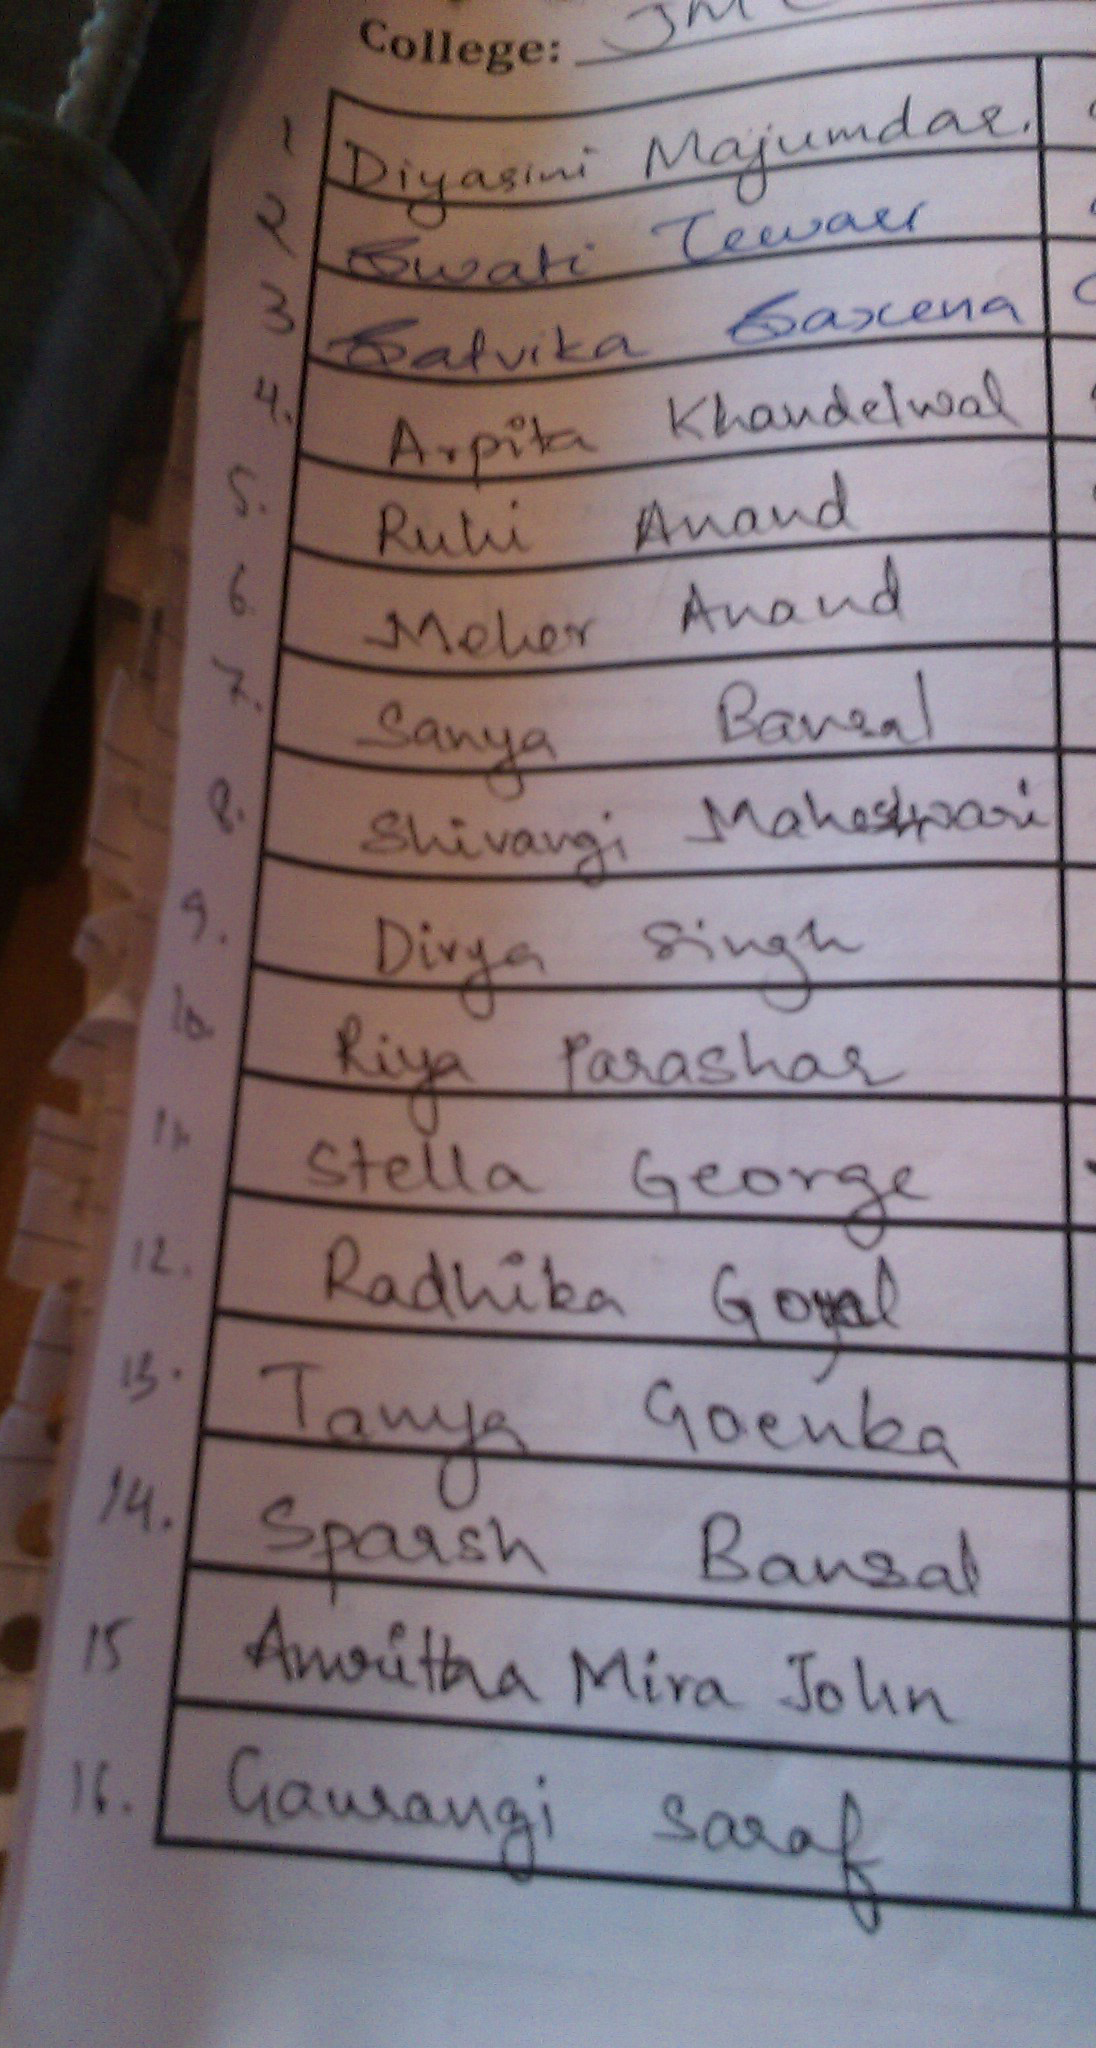 College: JMC
1 Diyasini Majumdar.
2 Swati Tewari
3 Satvika Saxena
4. Arpita Khandelwal
5. Ruhi Anand
6. Meher Anand
7. Sanya Bansal
8. Shivangi Maheshwari
9. Divya Singh
10. Riya Parashar
11. Stella George
12. Radhika Goyal
13. Tanya Goenka
14. Sparsh Bansal
15 Amritha Mira John
16. Gaurangi Saraf